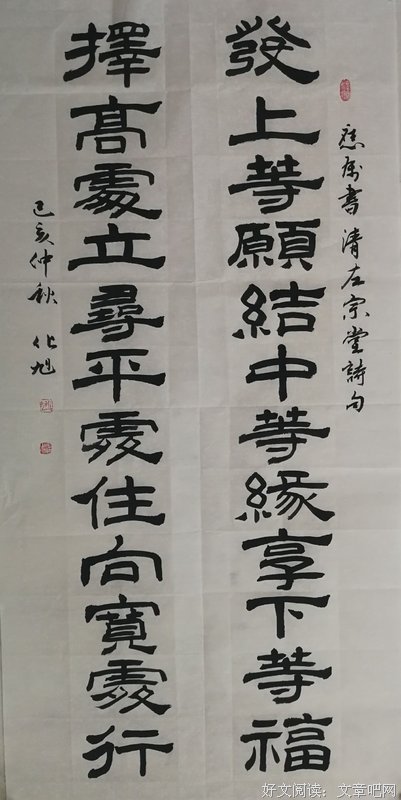 應屬書清左宗堂詩句
發上等願結中等緣享下等福
擇高處立尋平處住向寬處行
己亥仲秋 化旭
好文阅读：文章吧网